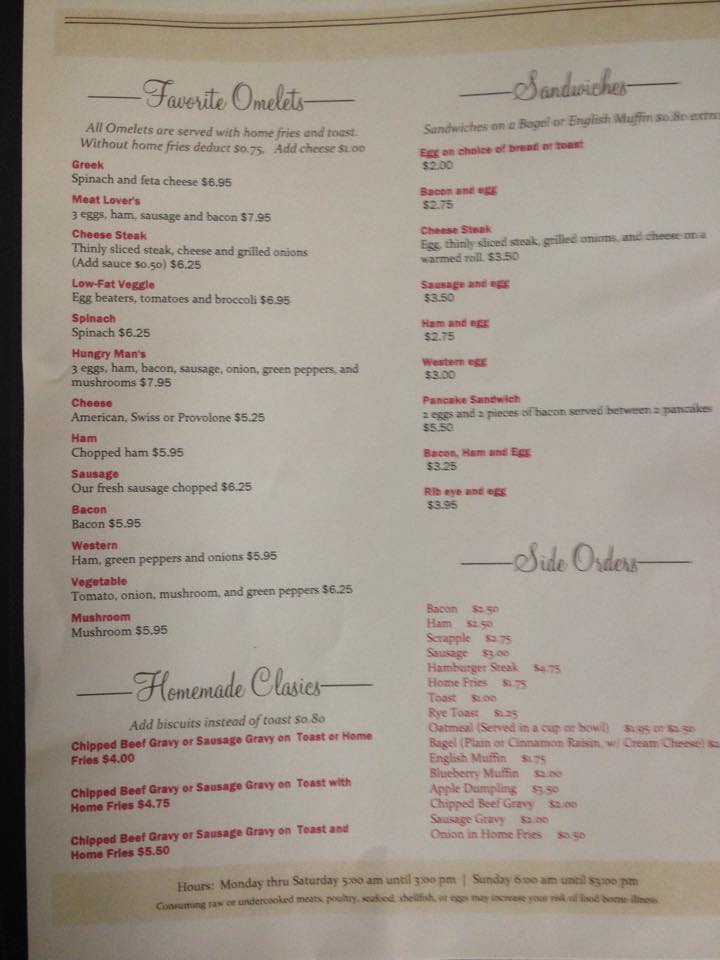 Favorite Omelets
All Omelets are served with home fries and toast.
Without home fries deduct $0.75.   Add cheese $1.00
Greek
Spinach and feta cheese $6.95
Meat Lover's
3 eggs, ham, sausage and bacon $7.95
Cheese Steak
Thinly sliced steak, cheese and grilled onions
(Add sauce $0.50) $6.25
Low-Fat Veggie
Egg beaters, tomatoes and broccoli $6.95
Spinach
Spinach $6.25
Hungry Man's
3 eggs, ham, bacon, sausage, onion, green peppers, and
mushrooms $7.95
Cheese
American, Swiss or Provolone $5.25
Ham
Chopped ham $5.95
Sausage
Our fresh sausage chopped $6.25
Bacon
Bacon $5.95
Western
Ham, green peppers and onions $5.95
Vegetable
Tomato, onion, mushroom, and green peppers $6.25
Mushroom
Mushroom $5.95
Homemade Clasics
Add biscuits instead of toast $0.80
Chipped Beef Gravy or Sausage Gravy on  Toast or Home
Fries $4.00
Chipped Beef Gravy or Sausage Gravy on  Toast with
Home Fries $4.75
Chipped Beef Gravy or Sausage Gravy on  Toast and
Home Fries $5.50
Sandwiches
Sandwiches on a Bagel or English Muffin $0.80 extra
Egg on choice of bread or toast
$2.00
Bacon and egg
$2.75
Cheese Steak
Egg, thinly sliced steak, grilled onions, and cheese on a
warmed roll. $3.50
Sausage and egg
$3.50
Ham and egg
$2.75
Western egg
$3.00
Pancake Sandwich
2 eggs and 2 pieces of bacon served between 2 pancakes
$5.50
Bacon, Ham and Egg
$3.25
Rib eye and egg
$3.95
Side Orders
Bacon   $2.50
Ham   $2.50
Scrapple   $2.75
Sausage   $3.00
Hamburger Steak   $4.75
Home Fries   $1.75
Toast   $1.00
Rye Toast   $1.25
Oatmeal (Served in a cup or bowl)   $1.95 or $2.50
Bagel (Plain or Cinnamon Raisin, w/ Cream Cheese)
English Muffin   $1.75
Blueberry Muffin   $2.00
Apple Dumpling   $3.50
Chipped Beef Gravy   $2.00
Sausage Gravy   $2.00
Onion in Home Fries   $0.50
Hours:  Monday thru Saturday 5:00 am until 3:00 pm  |  Sunday 6:00 am until $3:00 pm
Consuming raw or undercooked meats, poultry, seafood, shellfish, or eggs may increase your risk of food borne illness.